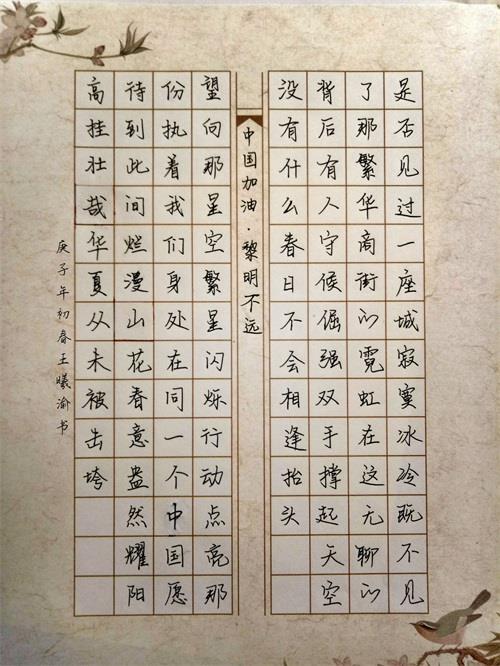 是否见过一座城寂寞冰冷既不见
了那繁华商街的霓虹在这无聊的
背后有人守候倔强双手撑起天空
没有什么春日不会相逢抬头
中国加油·黎明不远
望向那星空繁星闪烁行动点亮那
份执着我们身处在同一个中国愿
待到此间烂漫山花春意盎然耀阳
高挂壮哉华夏从未被击垮
庚子年初春王曦渝书